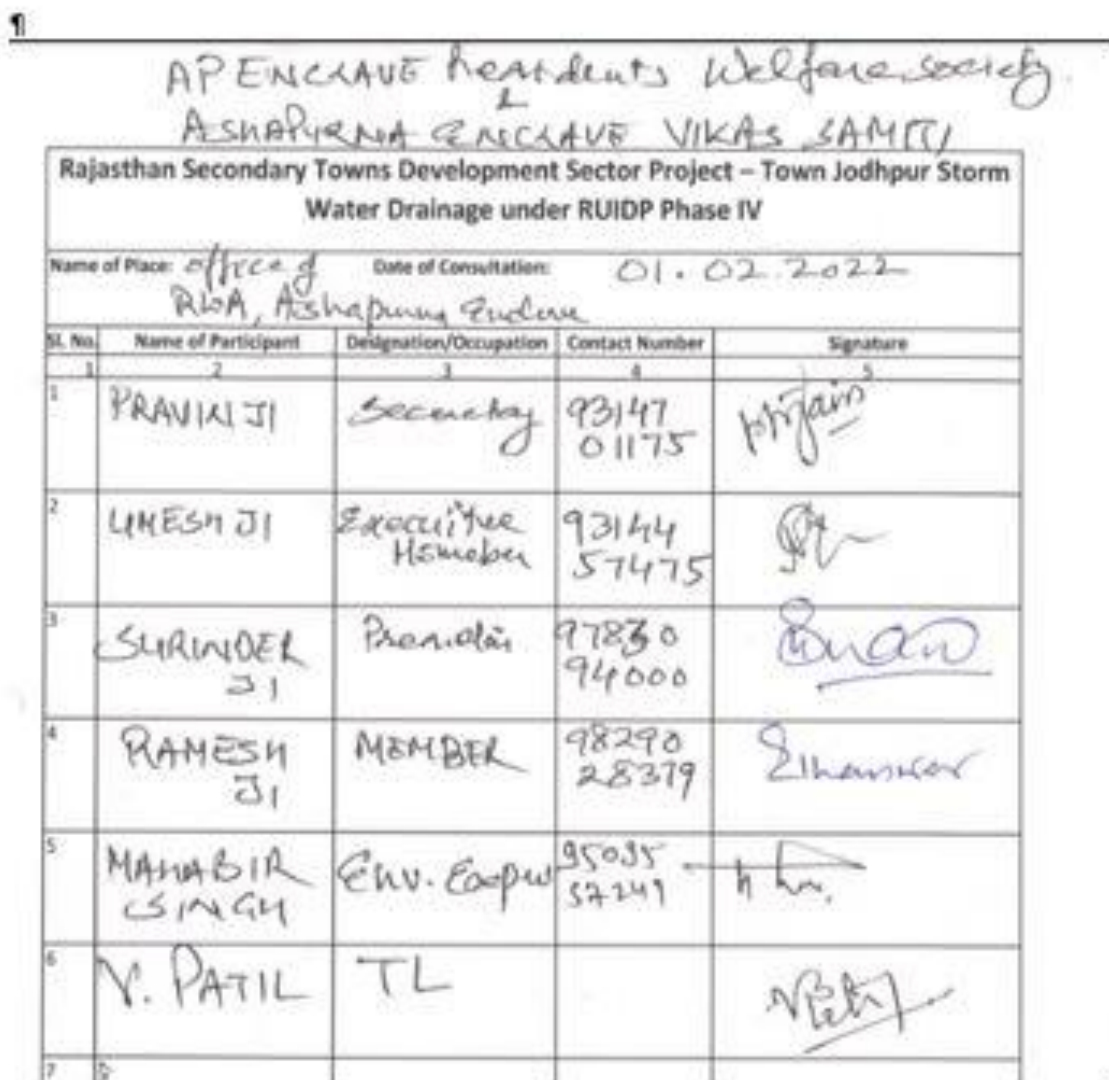 ¶
AP ENCLAVE Residents Welfare society
&
ASHAPURNA ENCLAVE VIKAS SAMITI
Rajasthan Secondary Towns Development Sector Project – Town Jodhpur Storm
Water Drainage under RUIDP Phase IV
Name of Place: office of Date of Consultation: 01.02.2022
RWA, Ashapurna Enclave
Sl. No. Name of Participant Designation/Occupation Contact Number Signature
1 2 3 4 5
1 PRAVIN JI Secretary 93147
01175
2 UMESH JI Executive 93144
57475
3 SURINDER 97830
JI 94000
4 RAMESH MEMBER 98290
JI 28379
5 MAHABIR Env. 95095
SINGH 37249
6 V. PATIL TL
7